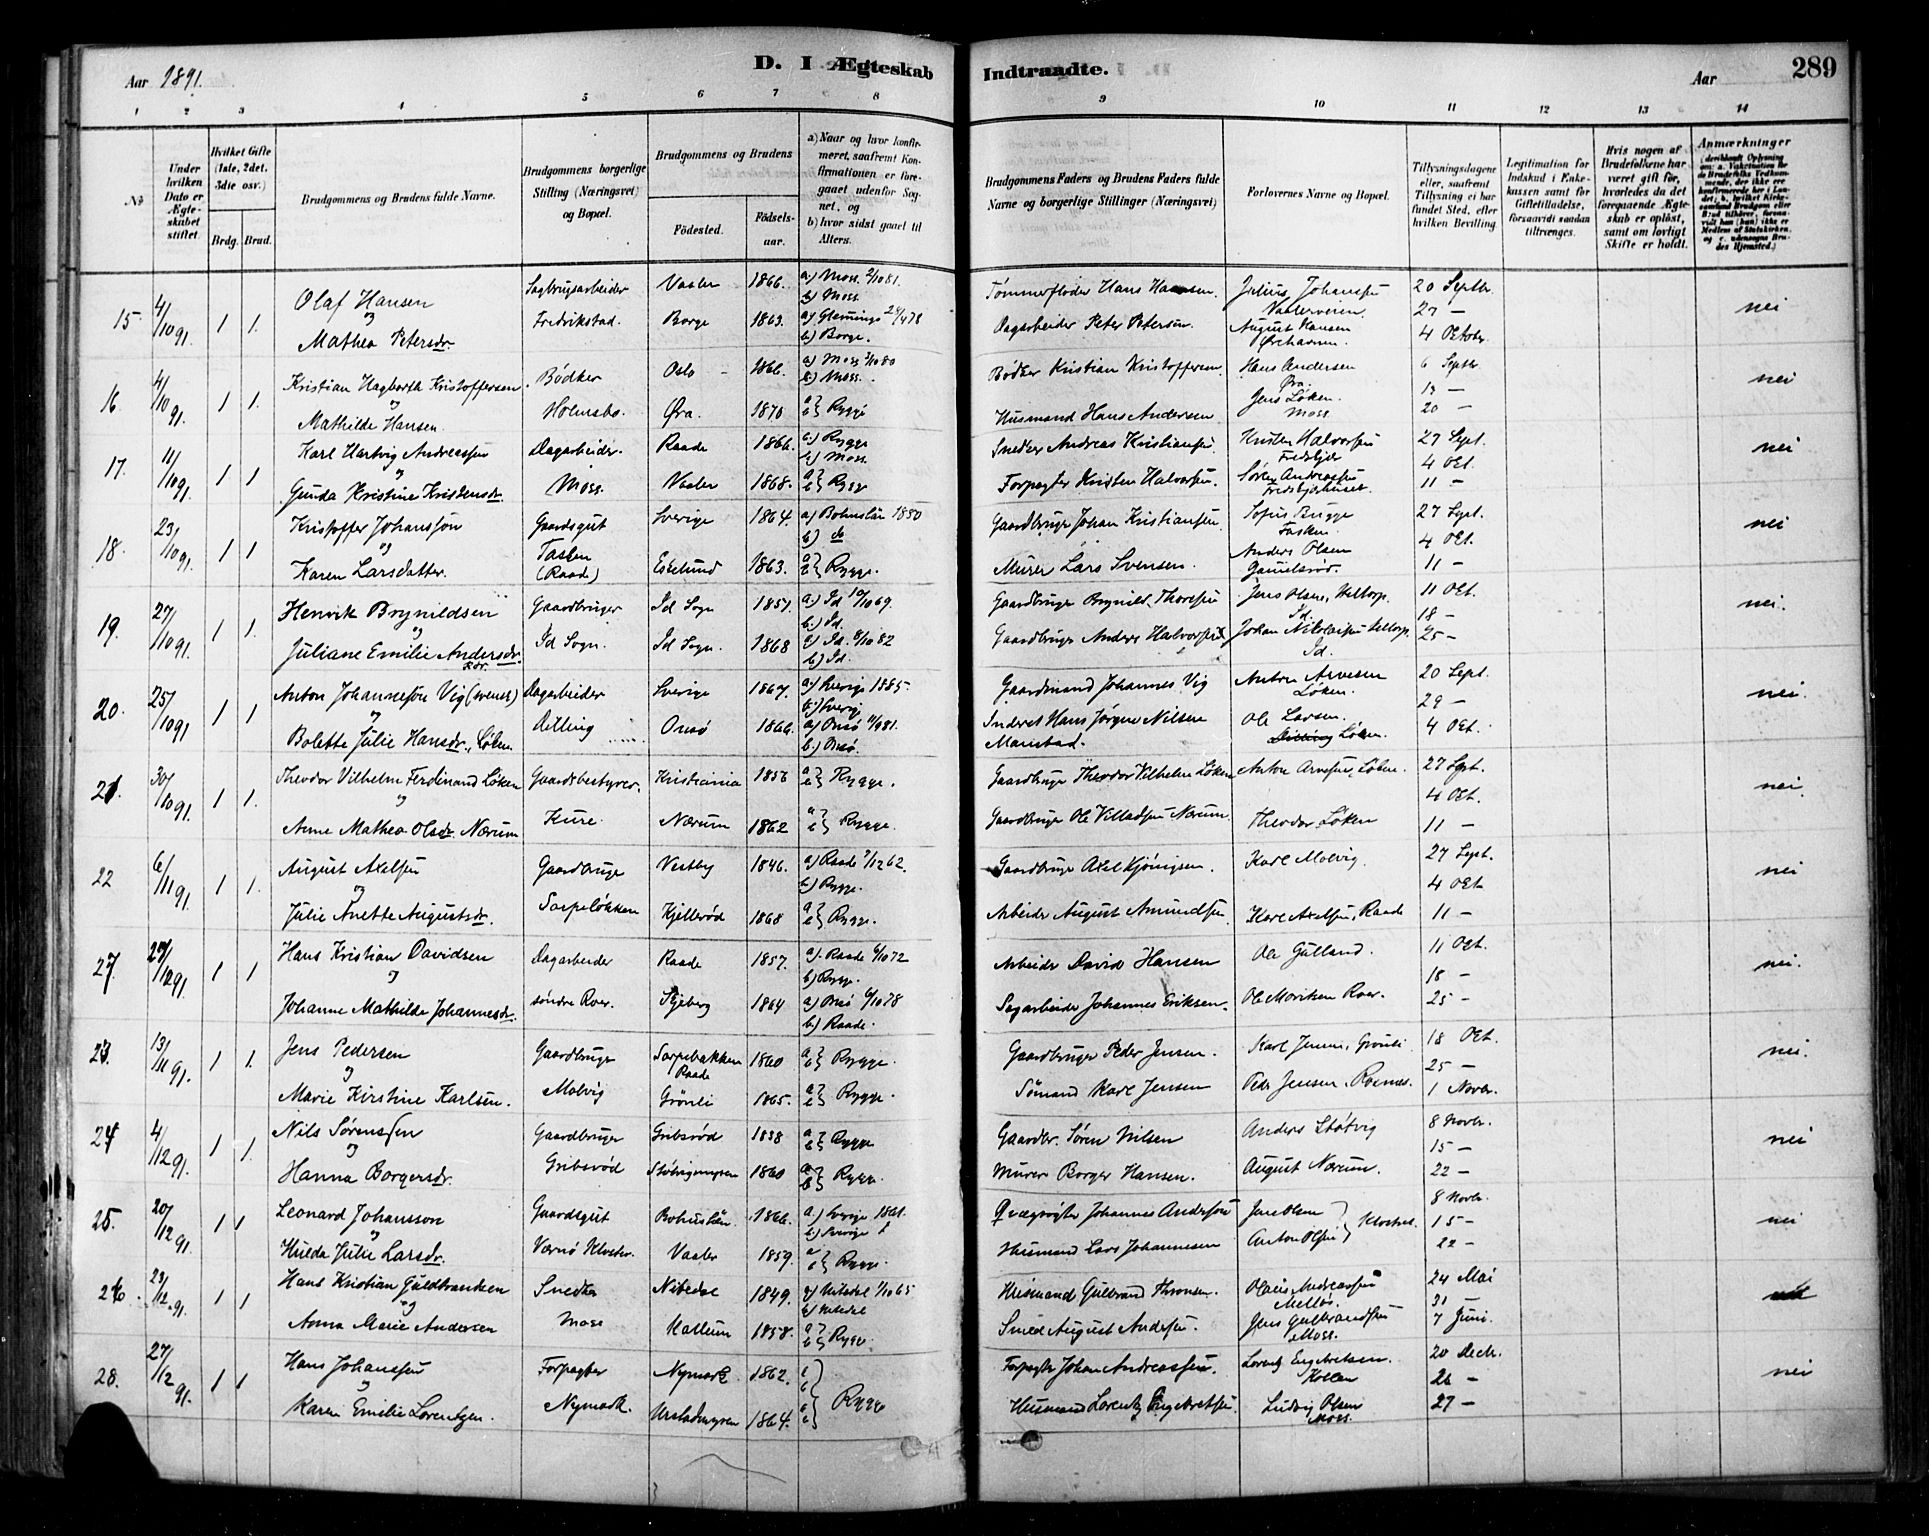 Aar 1891.
D. I Ægteskab
Indtraadte.
Aar
289
1
2
3
4
5
6
7
8
9
10
11
12
13
14
No
Under hvilken Dato er Ægteskabet stiftet.
Hvilket Gifte (1ste, 2det, 3die osv.)
Brdg.
Brud.
Brudgommens og Brudens fulde Navne.
Brudgommens borgerlige Stilling (Næringsvei) og Bopæl.
Brudgommens og Brudens
Fødested.
Fødsels-aar.
a) Naar og hvor konfirmeret, saafremt Konfirmationen er foregaaet udenfor Sognet, og
b) hvor sidst gaaet til Alters.
Brudgommens Faders og Brudens Faders fulde Navne og borgerlige Stillinger (Næringsvei)
Forlovernes Navne og Bopæl.
Tillysningsdagene eller, saafremt Tillysning ei har fundet Sted, efter hvilken Bevilling.
Legitimation for Indskud i Enkekassen samt for Giftetilladelse, forsaavidt saadan tiltrænges.
Hvis nogen af Brudefolkene har været gift før, hvorledes da det foregaaende Ægteskab er opløst, samt om lovligt Skifte er holdt.
Anmærkninger
15. 4/10 91. 1 1. Olaf Hansen Sagbrugsarbeider Vaaler 1866. a) Moss 2/10 81. b) Moss Tømmerfløder Hans Hansen. Julius Johansen Vallerveien 20 Septb. nei
og Fredrikstad. 27 –
Mathea Petersdr. Borge 1863. b) Borge. Dagarbeider Peter Petersen. August Hansen 4 Oktober
16. 4/10 91. 1 1. Kristian Hagbarth Kristoffersen Bødker Oslo 1866. a) Moss 2/10 80 b) Moss. Bødker Kristian Kristoffersen. Hans Andersen 6 Septb nei
og Holmsbo. Jens Løken 13 –
Mathilde Hansen. Øra. 1870 a b} Rygge Husmand Hans Andersen Moss 20 –
17. 11/10 91. 1 1 Karl Hartvig Andreassen Dagarbeider. Raade 1866. a) Rygge b) Moss. Snedker Andreas Kristiansen Kristen Halvorsen 27 Sept. nei
og Moss. 4 Oct.
Gunda Kristine Kristensdr. Vaaler 1868. a b} Rygge Forpagter Kristen Halvorsen. Søren Andreassen 11 –
18. 23/10 91. 1 1. Kristoffer Johanssøn Gaardsgut Sverige 1864. a) Bohuslän 1880 b) do Gaardbruger Johan Kristiansen. Sofus Bugge Tasken 27 Sept. nei
og Tasken (Raade) 4 Oct.
Karen Larsdatter. Eskelund 1863. a b} Rygge. Murer Lars Svensen. Anders Olsen 11 –
19. 27/10 91. 1 1. Henrik Brynildsen Gaardbruger Id Sogn 1851. a) Id 10/10 69. b) Id. Gaardbruger Brynild Thoresen Jens Olsen, Id. 11 Oct. nei.
og Id Sogn. 18 –
Juliane Emilie Andersdr. Id Sogn. 1868 a) Id. 8/10 82 b) Id. Gaardbruger Anders Halvorsen Johan Nikolaisen Id. 25 –
20. 25/10 91 1 1. Anton Johannesøn Vig (svensk) Dagarbeider Sverige 1867. a) Sverige 1885. b) Sverig Gaardmand Johannes Vig Anton Arvesen Løken. 20 Sept. nei.
og Dilling 29 –
Bolette Julie Hansdr., Løken. Onsø 1866. a) Onsø b) Onsø. Inderst Hans Jørgen Nilsen Mariestad. Ole Larsen Løken. 4 Oct.
21. 30/10 91. 1 1. Theodor Vilhelm Ferdinand Løken Gaardsbestyrer. Kristiania 1856 a b} Rygge. Gaardbruger Theodor Vilhelm Løken Anton Arvesen, Løken. 27 Sept. nei.
og Kure. 4 Oct.
Anne Mathea Olsdr Nærum Nærum 1862 a b} Rygge. Gaardbruger Ole Villadsen Nærum. Theodor Løken 11 –
22 6/11 91. 1 1. August Axelsen Gaardbruger Vestby 1846. a) Raade 7/12 62. b) Rygge. Gaardbruger Axel Kjønigsen. Karl Molvig. 27 Sept. nei
og Sarpeløkken 4 Oct.
Julie Anette Augustsdr. Kjellerød 1868 a b} Rygge. Arbeider August Amundsen Karl Axelsen, Raade 11 –
27. 1 1 Hans Kristian Davidsen Dagarbeider Raade 1857. a). Raade 6/10 72 b) Rygge. Arbeider David Hansen Ole Gulland. 11 Oct. nei.
og søndre Roer. 18 –
Johanne Mathilde Johannesdr. Skjeberg 1864 a) Onsø 6/10 78 b) Raade. Sagarbeider Johannes Eriksen. Ole Moriksen Roer. 25 –
23. 13/11 91. 1 1. Jens Pedersen Gaardbruger Sarpebakken Raade 1860 a b} Rygge. Gaardbruger Peder Jensen. Karl Jensen, Grønli 18 Oct. nei.
og Molvig 25 –
Marie Kirstine Karlsen. Grønli 1865. a b} Rygge. Sømand Karl Jensen Peder Jensen, Rosnes. 1 Novbr.
24 4/12 91. 1 1. Nils Sørenssen Gaardbruger Gribsrød 1838 a b} Rygge Gaardbr. Søren Nilsen Anders Støtvig 8 Novbr. nei
og Gribsrød 15 –
Hanna Borgersdr. Støtvigmyren 1860 a b} Rygge. Murer Borger Hansen. August Nærum. 22 –
25. 20/12 91. 1 1 Leonard Johansson Gaardsgut Bohuslän. 1866. a.) Sverige b.) Sverige Qvægrøgter Johannes Andersøn Jens Olsen } Klostret. 8 Novbr. nei
og Værnø Kloster. 15 –
Hulda Julie Larsdr. Vaaler 1859. a b} Rygge. Husmand Lars Johannesen Anton Olsen 22 –
26. 23/12 91. 1 1 Hans Kristian Guldbrandsen Snedker Nitedal 1849. a) Nitedal 1/10 65 b) Nitedal Husmand Gulbrand Thronsen. Olaus Andreassen Melløs. 24 Mai
og Moss 31 –
Anna Marie Andersen Kallum 1858. a b} Rygge. Smed August Andersen. Jens Gulbrandsen Moss. 7 Juni.
28. 27/12 91. 1 1 Hans Johanssen Forpagter Nymark 1862. Rygge Forpagter Johan Andreassen. Lorentz Engebretsen. Kollen 20 Decbr. nei
og Nymark. 26 –
Karen Emilie Lorentzen. Ursladmyren 1864. Husmand Lorentz Engebretsen. Ludvig Olsen Moss. 27 –